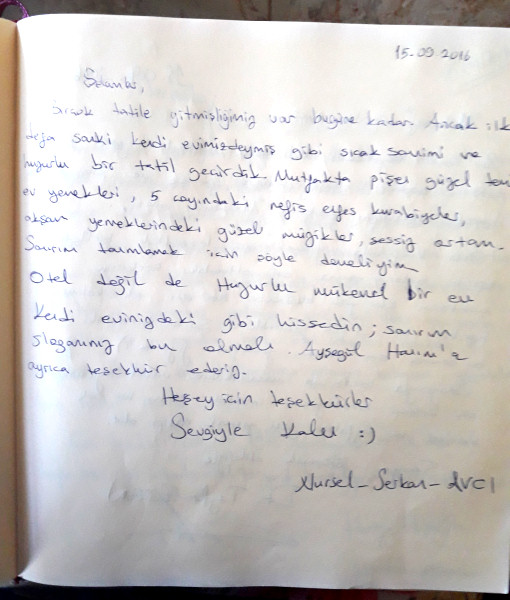 15.09.2016
Selamlar,
Birçok tatile gitmişliğimiz var bugüne kadar. Ancak ilk
defa sanki kendi evimizdeymiş gibi sıcak samimi ve
huzurlu bir tatil geçirdik. Mutfakta pişen güzel
ev yemekleri, 5 çayındaki nefis kurabiyeler,
akşam yemeklerindeki güzel müzikler, sessiz ortam.
Sanırım tanımlamak için şöyle demeliyim
Otel değil de Huzurlu mükemel bir ev
Kendi evinizdeki gibi hissedin; sanırım
sloganınız bu olmalı. Ayşegül Hanım'a
ayrıca teşekkür ederiz.
Herşey için teşekkürler
Sevgiyle Kalın :)
Nursel - Serkan - AVCI